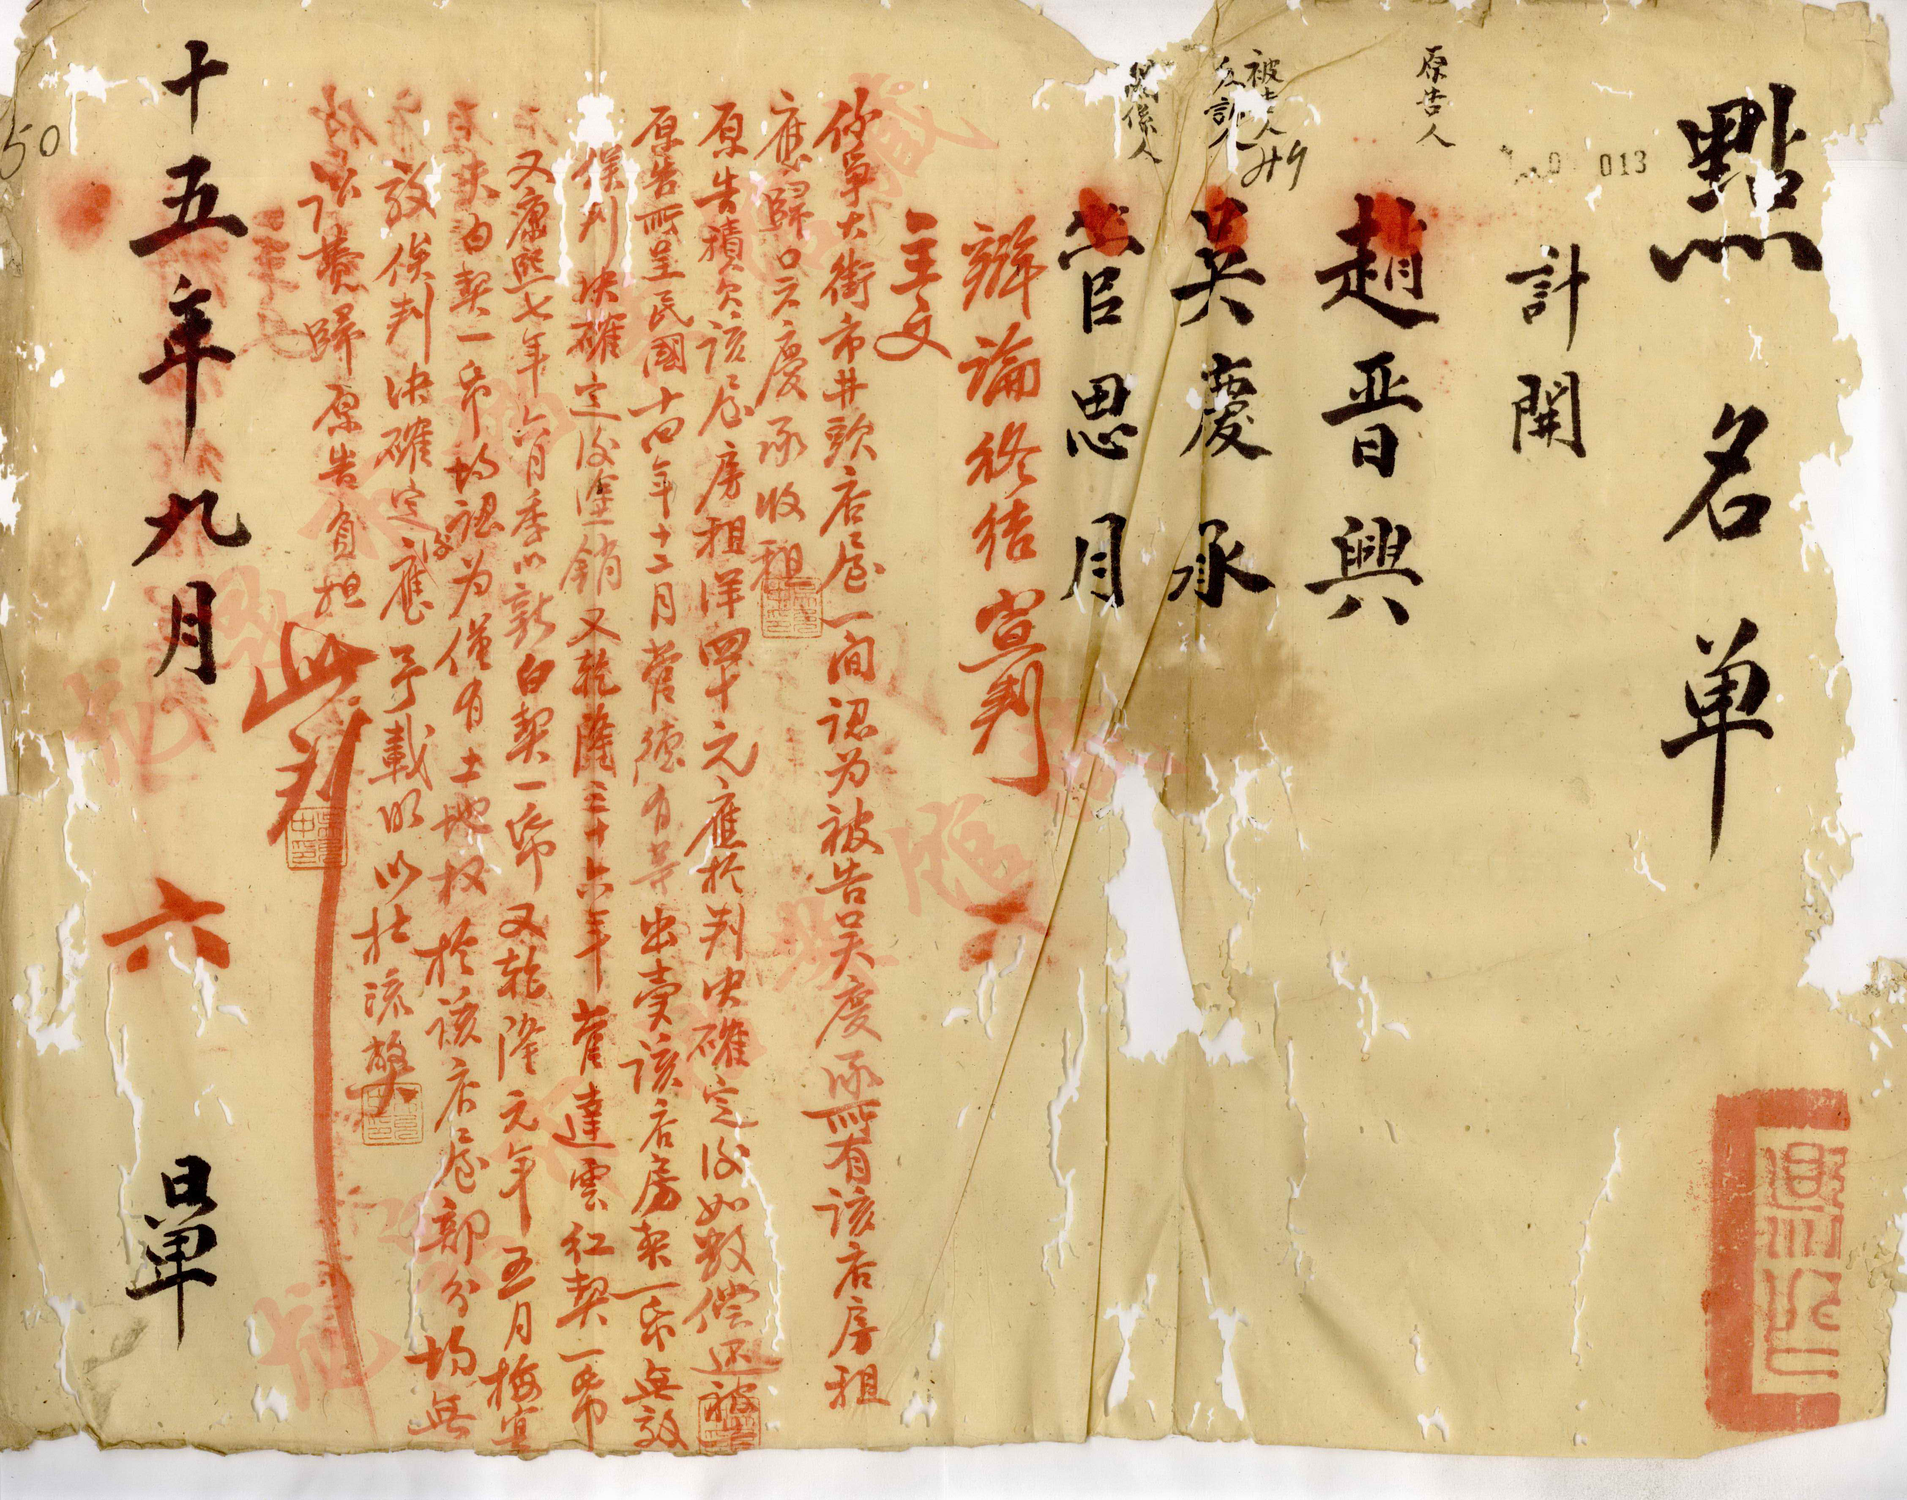 點名單
013
計開
原告人
趙晉興
被告人
反訴人
吳慶承
關係人
管思月
辯論終結宣判
主文
係爭大街市井頭店屋一間認为被告吳慶承所有該店房租
應歸吳慶承收租
原告積欠該屋房租洋四十元應於判决確定後如数偿还被
原告所呈民國十四年十二月管德有等出賣該店房契一帋無效
俟判决確定後塗銷又乾隆三十六年管達雲紅契一帋
又康熙七年六月季以新白契一帋又乾隆元年五月梅宜
夫白契一帋均認为僅有土地权於該店屋部分均無
效俟判决確定後應予載明以杜流弊
訟費歸原告負担
此判
十五年九月六日單
50